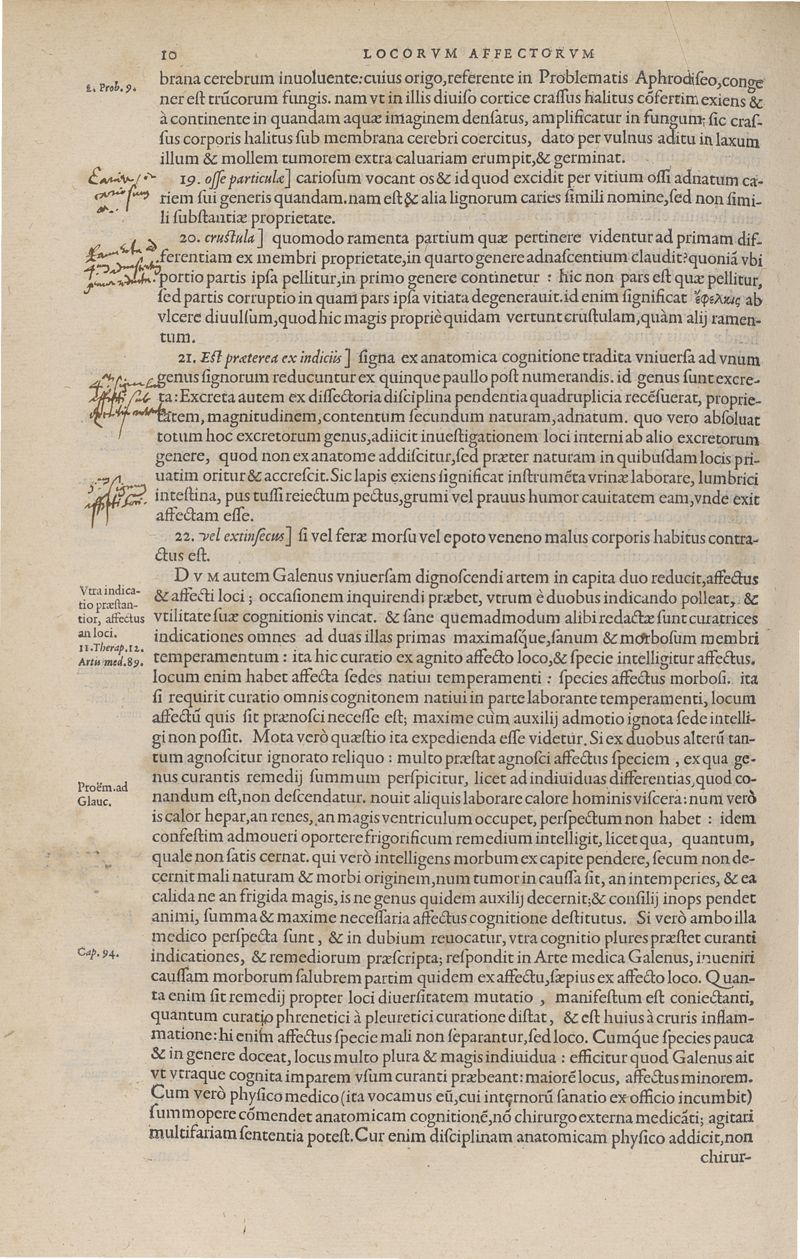 10 LOCORVM AFFECTORVM
2. Prob. 9.
brana cerebrum inuoluente: cuius origo, referente in Problematis Aphrodiſeo, conge
ner eſt trũcorum fungis. nam vt in illis diuiſo cortice craſſus halitus cõfertim exiens &
à continente in quandam aquæ imaginem denſatus, amplificatur in fungum; ſic craſ-
ſus corporis halitus ſub membrana cerebri coercitus, dato per vulnus aditu in laxum
illum & mollem tumorem extra caluariam erumpit, & germinat.
19. oſſe particulæ] carioſum vocant os & id quod excidit per vitium oſſi adnatum ca-
riem ſui generis quandam. nam eſt & alia lignorum caries ſimili nomine, ſed non ſimi-
li ſubſtantiæ proprietate.
20. cruſtula] quomodo ramenta partium quæ pertinere videntur ad primam dif-
ferentiam ex membri proprietate, in quarto genere adnaſcentium claudit? quoniã vbi
portio partis ipſa pellitur, in primo genere continetur : hic non pars eſt quæ pellitur,
ſed partis corruptio in quam pars ipſa vitiata degenerauit. id enim ſignificat ἔφελκις ab
vlcere diuulſum, quod hic magis propriè quidam vertunt cruſtulam, quàm alij ramen-
tum.
21. Eſt præterea ex indiciis] ſigna ex anatomica cognitione tradita vniuerſa ad vnum
genus ſignorum reducuntur ex quinque paullo poſt numerandis. id genus ſunt excre-
ta: Excreta autem ex diſſectoria diſciplina pendentia quadruplicia recẽſuerat, proprie-
tatem, magnitudinem, contentum ſecundum naturam, adnatum. quo vero abſoluat
totum hoc excretorum genus, adiicit inueſtigationem loci interni ab alio excretorum
genere, quod non ex anatome addiſcitur, ſed præter naturam in quibuſdam locis pri-
uatim oritur & accreſcit. Sic lapis exiens ſignificat inſtrumẽta vrinæ laborare, lumbrici
inteſtina, pus tuſſi reiectum pectus, grumi vel prauus humor cauitatem eam, vnde exit
affectam eſſe.
22. vel extinſecus] ſi vel feræ morſu vel epoto veneno malus corporis habitus contra-
ctus eſt.
Vtra indica-
tio præſtan-
tior, affectus
an loci.
11. Therap. 12.
Artis med. 89.
DVM autem Galenus vniuerſam dignoſcendi artem in capita duo reducit, affectus
& affecti loci ; occaſionem inquirendi præbet, vtrum è duobus indicando polleat, &
vtilitate ſuæ cognitionis vincat. & ſane quemadmodum alibi redactæ ſunt curatrices
indicationes omnes ad duas illas primas maximaſq́ue, ſanum & morboſum membri
temperamentum : ita hic curatio ex agnito affecto loco, & ſpecie intelligitur affectus.
locum enim habet affecta ſedes natiui temperamenti : ſpecies affectus morboſi. ita
ſi requirit curatio omnis cognitonem natiui in parte laborante temperamenti, locum
affectũ quis ſit prænoſci neceſſe eſt; maxime cùm auxilij admotio ignota ſede intelli-
gi non poſſit. Mota verò quæſtio ita expedienda eſſe videtur. Si ex duobus alterũ tan-
tum agnoſcitur ignorato reliquo : multo præſtat agnoſci affectus ſpeciem , ex qua ge-
Proëm. ad
Glauc.
nus curantis remedij ſummum perſpicitur, licet ad indiuiduas differentias, quod co-
nandum eſt, non deſcendatur. nouit aliquis laborare calore hominis viſcera: num verò
is calor hepar, an renes, an magis ventriculum occupet, perſpectum non habet : idem
confeſtim admoueri oportere frigorificum remedium intelligit, licet qua, quantum,
quale non ſatis cernat. qui verò intelligens morbum ex capite pendere, ſecum non de-
cernit mali naturam & morbi originem, num tumor in cauſſa ſit, an intemperies, & ea
calida ne an frigida magis, is ne genus quidem auxilij decernit; & conſilij inops pendet
animi, ſumma & maxime neceſſaria affectus cognitione deſtitutus. Si verò ambo illa
medico perſpecta ſunt , & in dubium reuocatur, vtra cognitio plures præſtet curanti
Cap. 94.
indicationes, & remediorum præſcripta; reſpondit in Arte medica Galenus, inueniri
cauſſam morborum ſalubrem partim quidem ex affectu, ſæpius ex affecto loco. Quan-
ta enim ſit remedij propter loci diuerſitatem mutatio , manifeſtum eſt coniectanti,
quantum curatio phrenetici à pleuretici curatione diſtat, & eſt huius à cruris inflam-
matione: hi enim affectus ſpecie mali non ſeparantur, ſed loco. Cumq́ue ſpecies pauca
& in genere doceat, locus multo plura & magis indiuidua : efficitur quod Galenus ait
vt vtraque cognita imparem vſum curanti præbeant: maiorẽ locus, affectus minorem.
Cum verò phyſico medico (ita vocamus eũ, cui internorũ ſanatio ex officio incumbit)
ſummopere cõmendet anatomicam cognitionẽ, nõ chirurgo externa medicãti; agitari
multifariam ſententia poteſt. Cur enim diſciplinam anatomicam phyſico addicit, non
chirur-